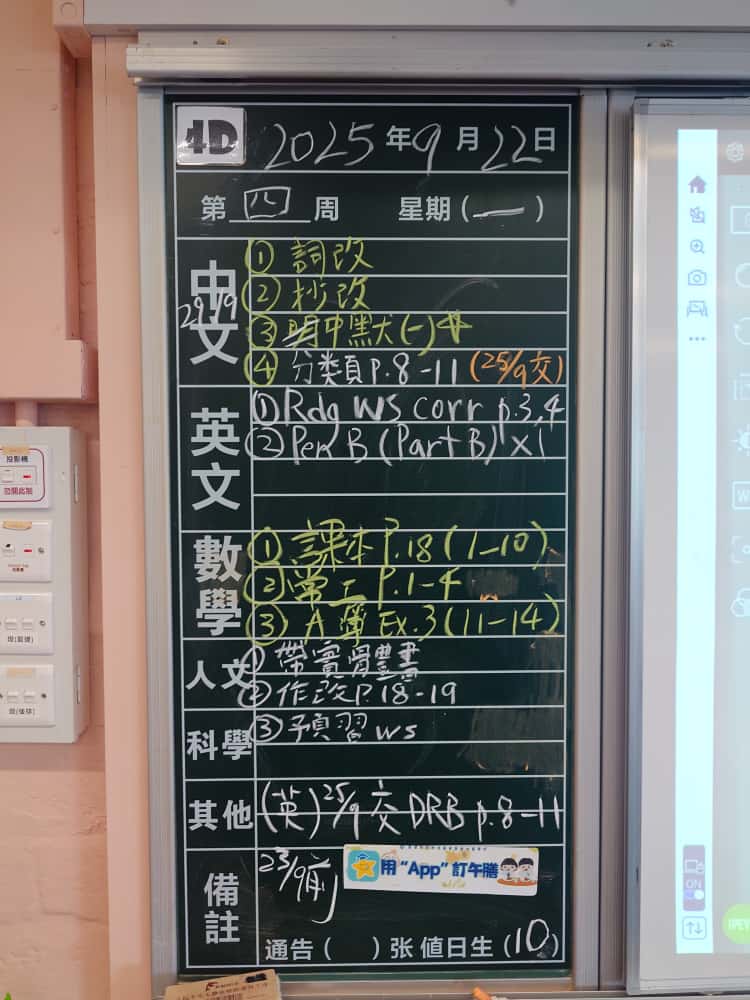 4D 2025年9月22日
第 四 周 星期(一)
中文
29/9
① 詞改
② 抄改
③ 中默(一)
④ 分類頁P.8-11 (25/9交)
英文
① Rdg WS corr p.3,4
② Pen B (Part B) x1
數學
① 課本P.18(1-10)
② 堂工 P.1-4
③ A簿 Ex.3(11-14)
人文
① 帶實體書
② 作改P.18-19
科學
③ 預習ws
其他
(英)25/9 交 DRB p.8-11
備註
23/9前
用 “App” 訂午膳
通告( )张 值日生(10)
投影機
ON